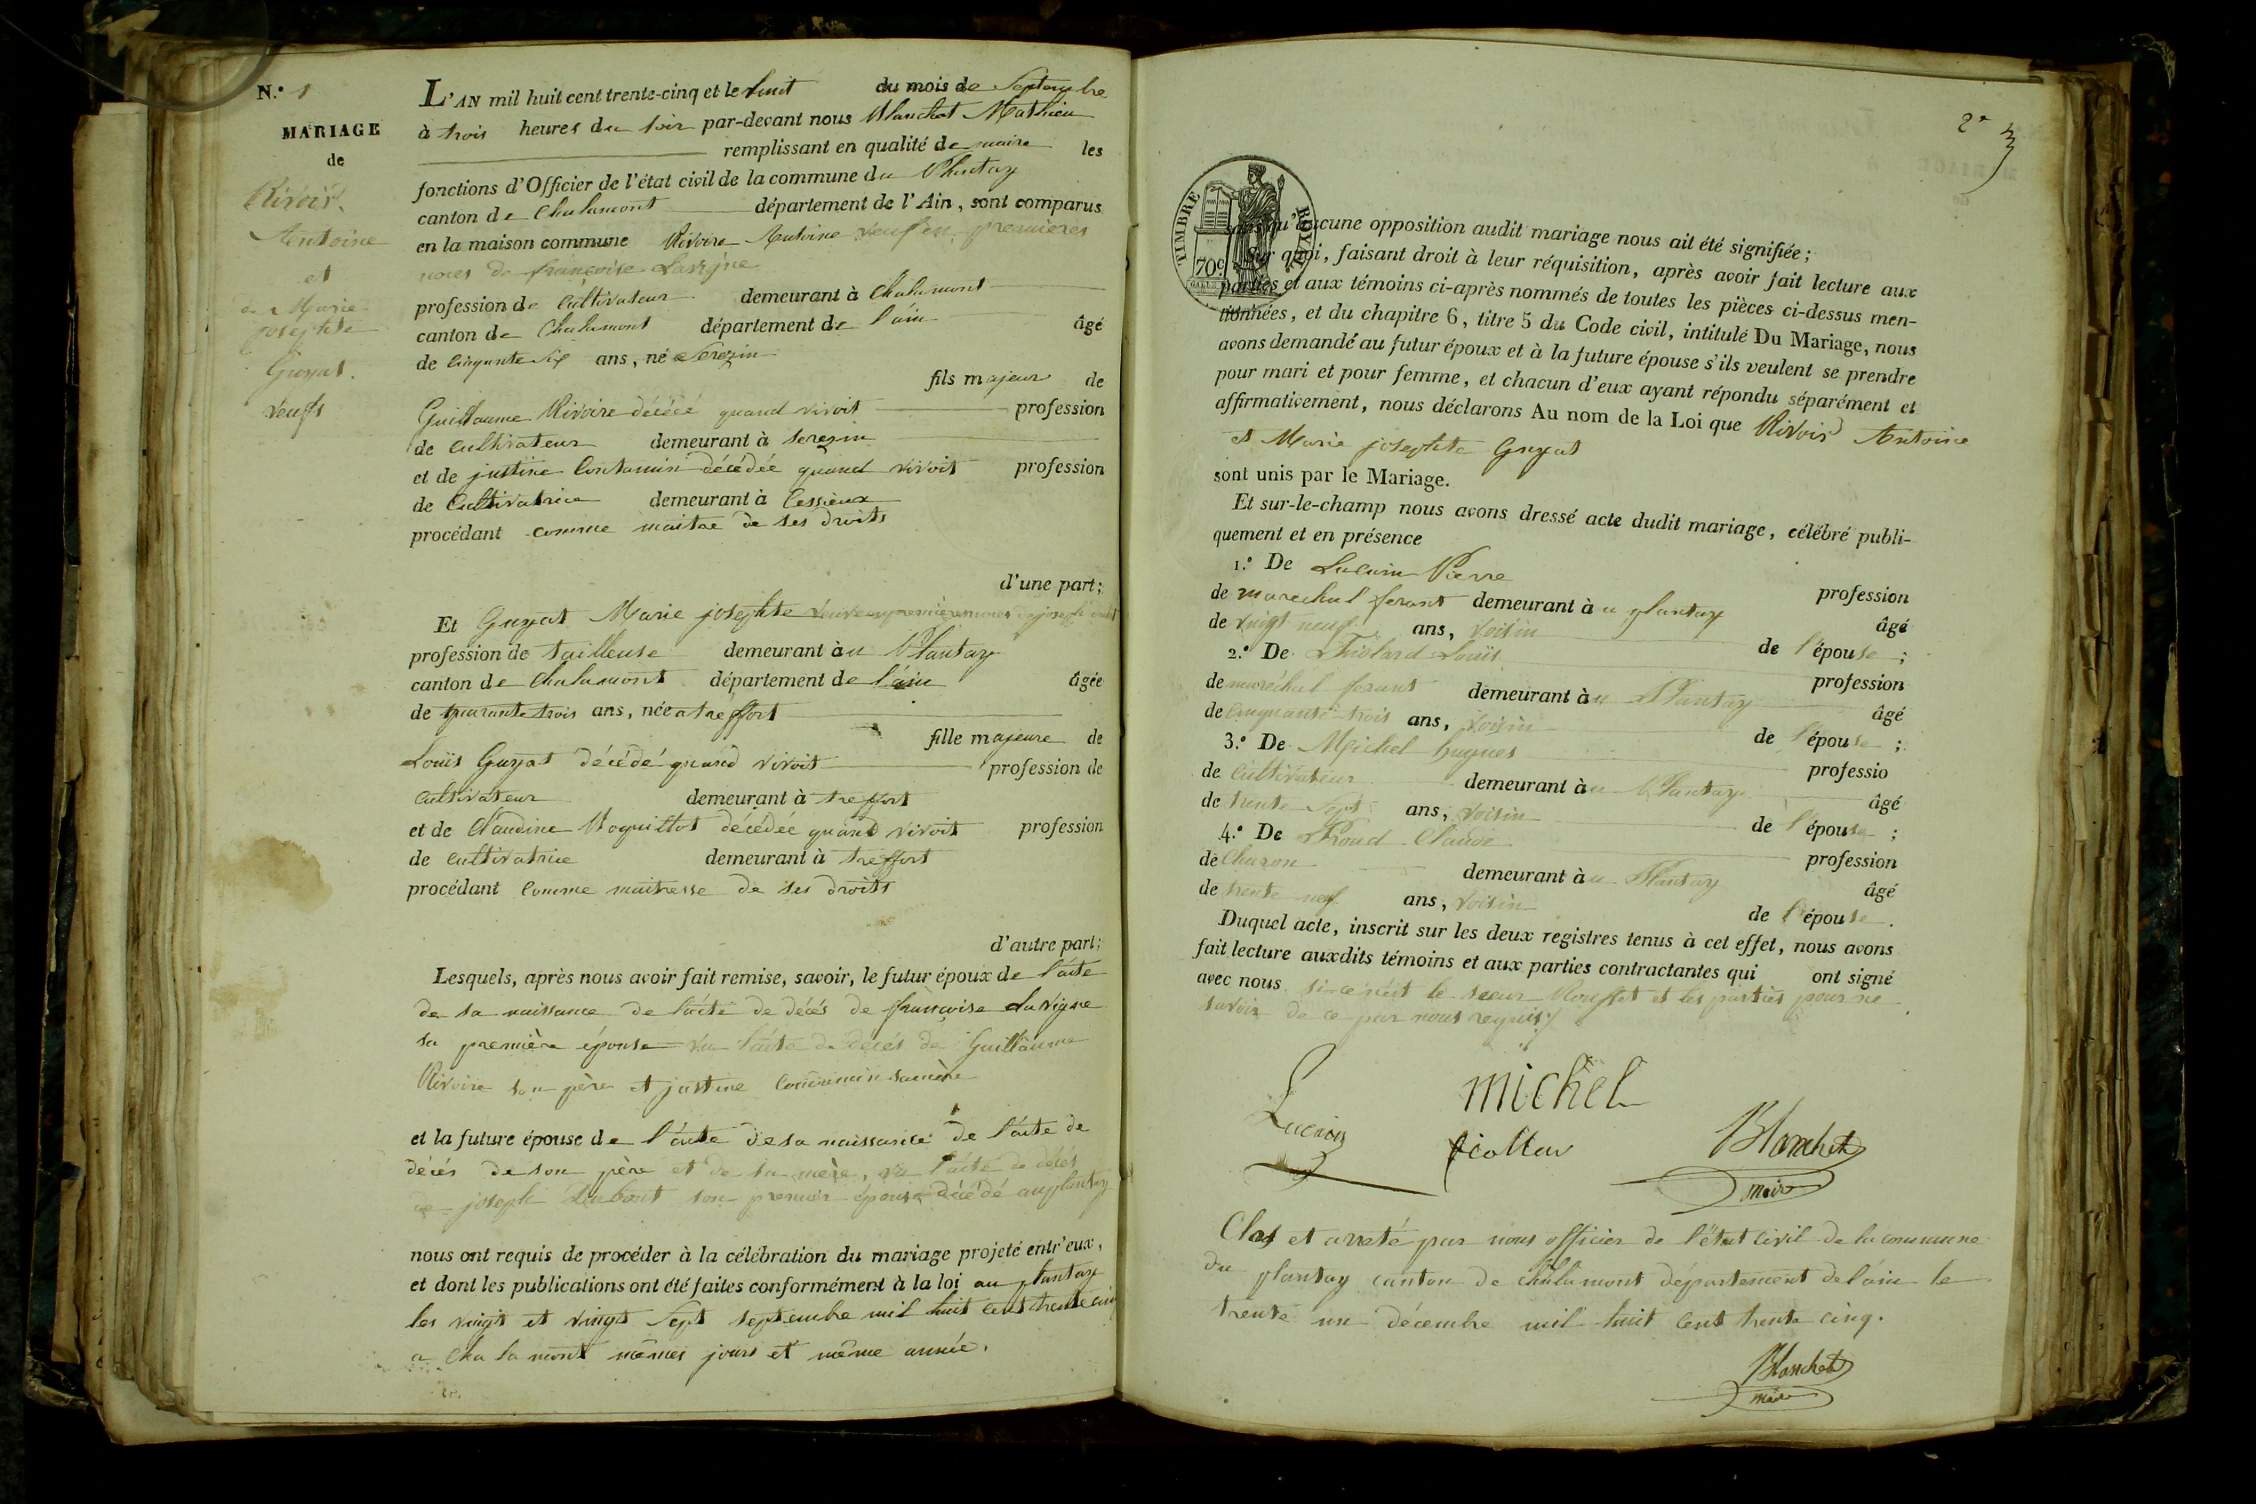 N.° 1
MARIAGE
de
Rivoir
Antoine
et
de Marie
josephte
Guyat.
veufs
L'AN mil huit cent trente-cinq et le huit du mois de Septembre
à trois heures du soir par-devant nous Blanchet Mathieu
remplissant en qualité de maire les
fonctions d'Officier de l'état civil de la commune du Plantay
canton de Chalamont département de l'Ain, sont comparus
en la maison commune Rivoire Antoine veuf en premières
noces de françoise Lavigne
profession de Cultivateur demeurant à Chalamont
canton de Chalamont département de l'ain âgé
de cinquante six ans, né Serezin
fils majeur de
Guillaume Rivoire décédé quand vivoit profession
de cultivateur demeurant à serezin
et de justine Contamin décédée quand vivoit profession
de Cultivatrice demeurant à Cessieux
procédant comme maitre de ses droits
d'une part;
Et Guyat Marie josephte veuve en première noces de joseph
profession de tailleuse demeurant à u Plantay
canton de Chalamont département de l'ain âgée
de quarante trois ans, née a treffort
fille majeure de
Louis Guyat décédé quand vivoit profession de
cultivateur demeurant à treffort
et de Claudine Roguillot décédée quand vivoit profession
de cultivatrice demeurant à treffort
procédant comme maitresse de ses droits
d'autre part;
Lesquels, après nous avoir fait remise, savoir, le futur époux de l'acte
de sa naissance de l'acte de décés de françoise Lavigne
sa première épouse vu l'acte de décés de Guillaume
Rivoire son père et justine sa mère
et la future épouse de l'acte de sa naissance de l'acte de
décés de son père et de sa mère, vu l'acte de décés
de joseph son premier époux décédé au plantay
nous ont requis de procéder à la célébration du mariage projeté entr'eux,
et dont les publications ont été faites conformément à la loi au plantay
les vingt et vingt sept septembre mil huit cent trente cinq
a Chalamont mêmes jours et même année.
2e
TIMBRE ROYAL
70c
sans qu'aucune opposition audit mariage nous ait été signifiée;
Sur quoi, faisant droit à leur réquisition, après avoir fait lecture aux
parties et aux témoins ci-après nommés de toutes les pièces ci-dessus men-
tionnées, et du chapitre 6, titre 5 du Code civil, intitulé Du Mariage, nous
avons demandé au futur époux et à la future épouse s'ils veulent se prendre
pour mari et pour femme, et chacun d'eux ayant répondu séparément et
affirmativement, nous déclarons Au nom de la Loi que Rivoir Antoine
et Marie josephte Guyat
sont unis par le Mariage.
Et sur-le-champ nous avons dressé acte dudit mariage, célébré publi-
quement et en présence
1.° De Pierre
profession
de marechal ferant demeurant à u plantay
âgé
de vingt neuf ans, voisin
de l'épouse;
2.° De Louis
profession
de maréchal ferant demeurant à u Plantay
âgé
de cinquante-trois ans, voisin
de l'épouse;
3.° De Michel hugues
professio
de Cultivateur demeurant à u Plantay
âgé
de trente sept ans, voisin
de l'épouse;
4.° De Claude
profession
de Charon demeurant à u Plantay
âgé
de trente neuf ans, voisin
de l'épouse.
Duquel acte, inscrit sur les deux registres tenus à cet effet, nous avons
fait lecture auxdits témoins et aux parties contractantes qui ont signé
avec nous si-ce n'est le sieur et les parties pour ne
savoir de ce par nous requis
michel
Blanchet
maire
Clos et arreté par nous officier de l'état civil de la commune
du plantay canton de chalamont département de l'ain le
trente un décembre mil huit cent trente cinq.
Blanchet
maire